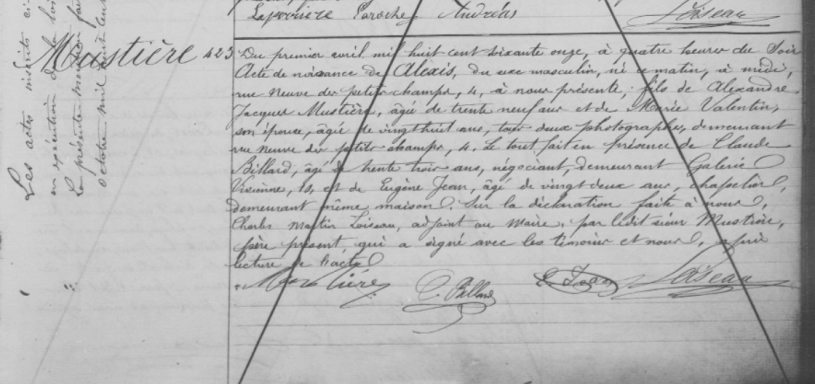 Laferrière Paroche Andréas Loiseau
Les actes inscrits ci
en exécution de la loi
Le présente mention fai
octobre mil
Mustière 423
Du premier avril mil huit cent soixante onze, à quatre heures du soir
Acte de naissance de Alexis, du sexe masculin, né ce matin, à midi,
rue Neuve des petits champs, 4, à nous présenté, fils de Alexandre
Jacques Mustière, âgé de trente neuf ans et de Marie Valentin,
son épouse, âgée de vingt huit ans, tous deux photographes, demeurant
rue neuve des petits champs, 4. Le tout fait en présence de Claude
Billard, âgé de trente trois ans, négociant, demeurant Galerie
Vivienne, 14, et de Eugène Jean, âgé de vingt deux ans, chapelier,
demeurant même maison. Sur la déclaration faite à nous,
Charles Martin Loiseau, adjoint au Maire, par ledit sieur Mustière,
père présent, qui a signé avec les témoins et nous, après
lecture de l'acte
Mustière C. Billard E. Jean Loiseau